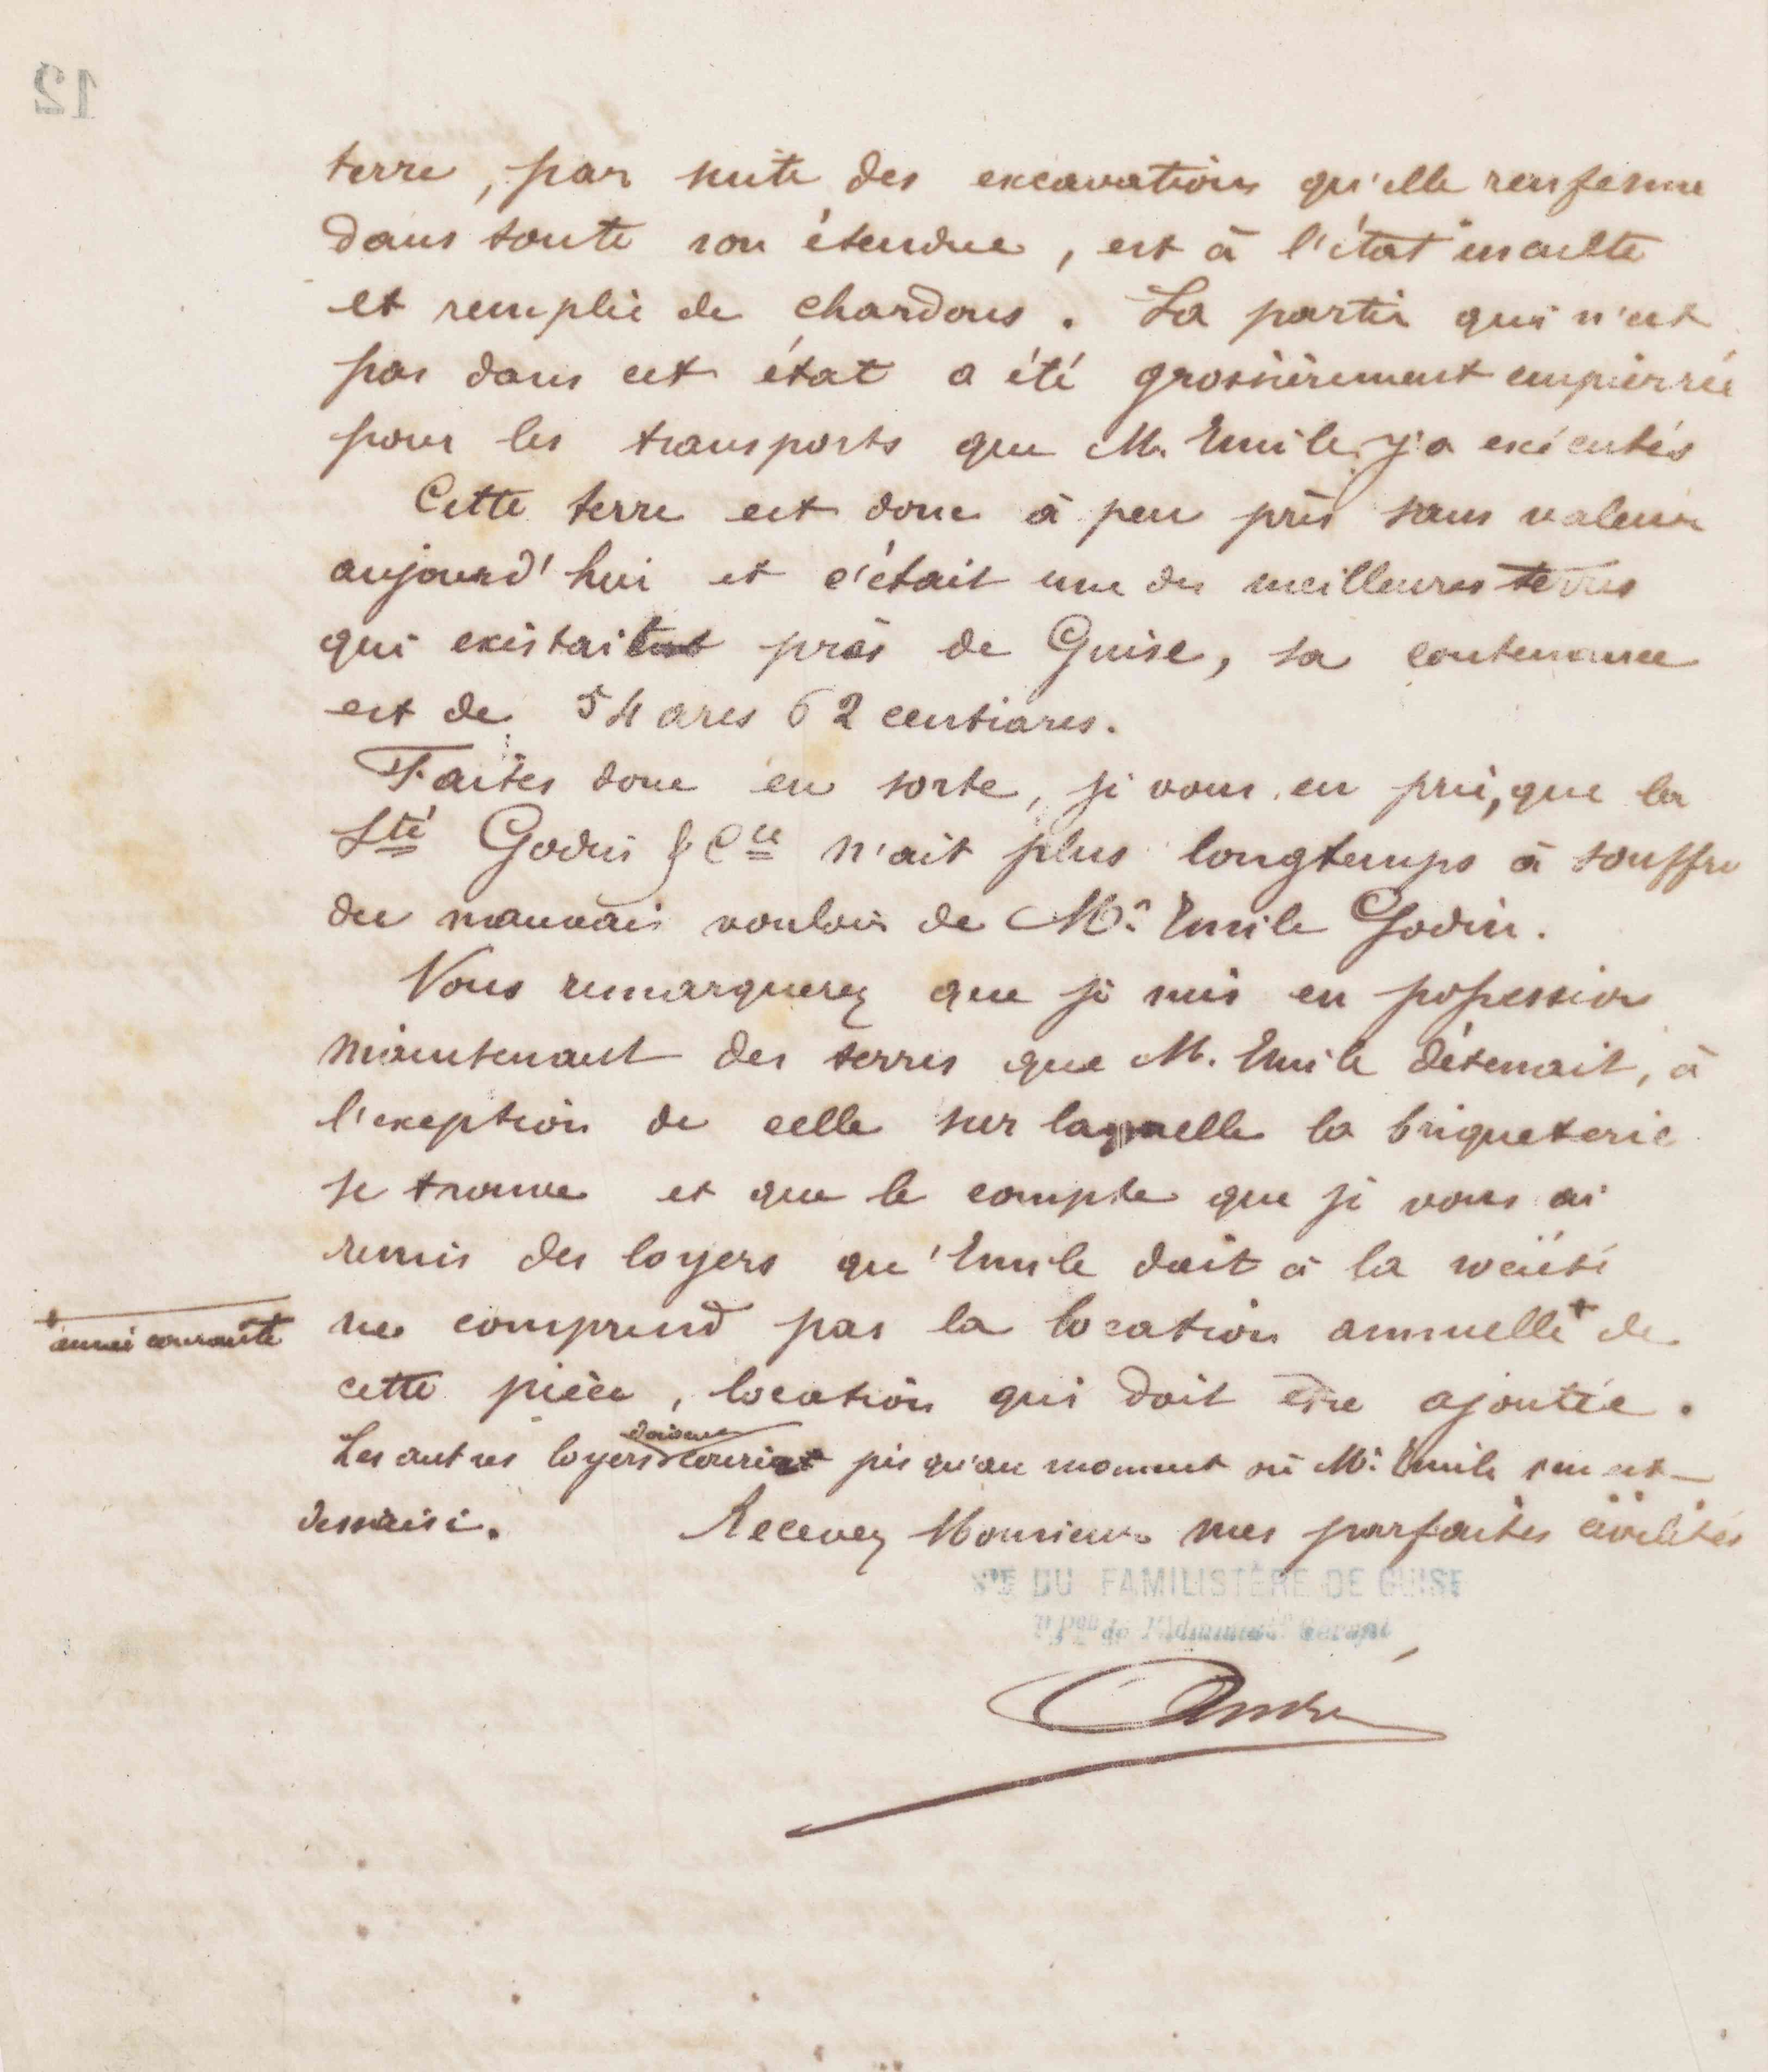 12
terre, par suite des excavations qu'elle renferme
dans toute son étendue, est à l'état inculte
et remplie de chardons. La partie qui n'est
pas dans cet état a été grossièrement empierrée
pour les transports que M. Emile y a exécutés
Cette terre est donc à peu près sans valeur
aujourd'hui et c'était une des meilleures terres
qui existait près de Guise, sa contenance
est de 54 ares 62 centiares.
Faites donc en sorte, je vous en prie, que la
Sté Godin & Cie n'ait plus longtemps à souffrir
du mauvais vouloir de Mr. Emile Godin.
Vous remarquerez que je suis en possession
maintenant des terres que M. Emile détenait, à
l'exeption de celle sur laquelle la briqueterie
se trouve et que le compte que je vous ai
remis des loyers qu'Emile doit à la société
ne comprend pas la location annuelle + de
+ année courante
cette pièce, location qui doit être ajoutée.
Les autres loyers doivent courir jusqu'au moment où Mr. Emile s'en est
dessaisi. Recevez Monsieur mes parfaites civilités
Sté DU FAMILISTÈRE DE GUISE
Pon de l'Administr Gérant